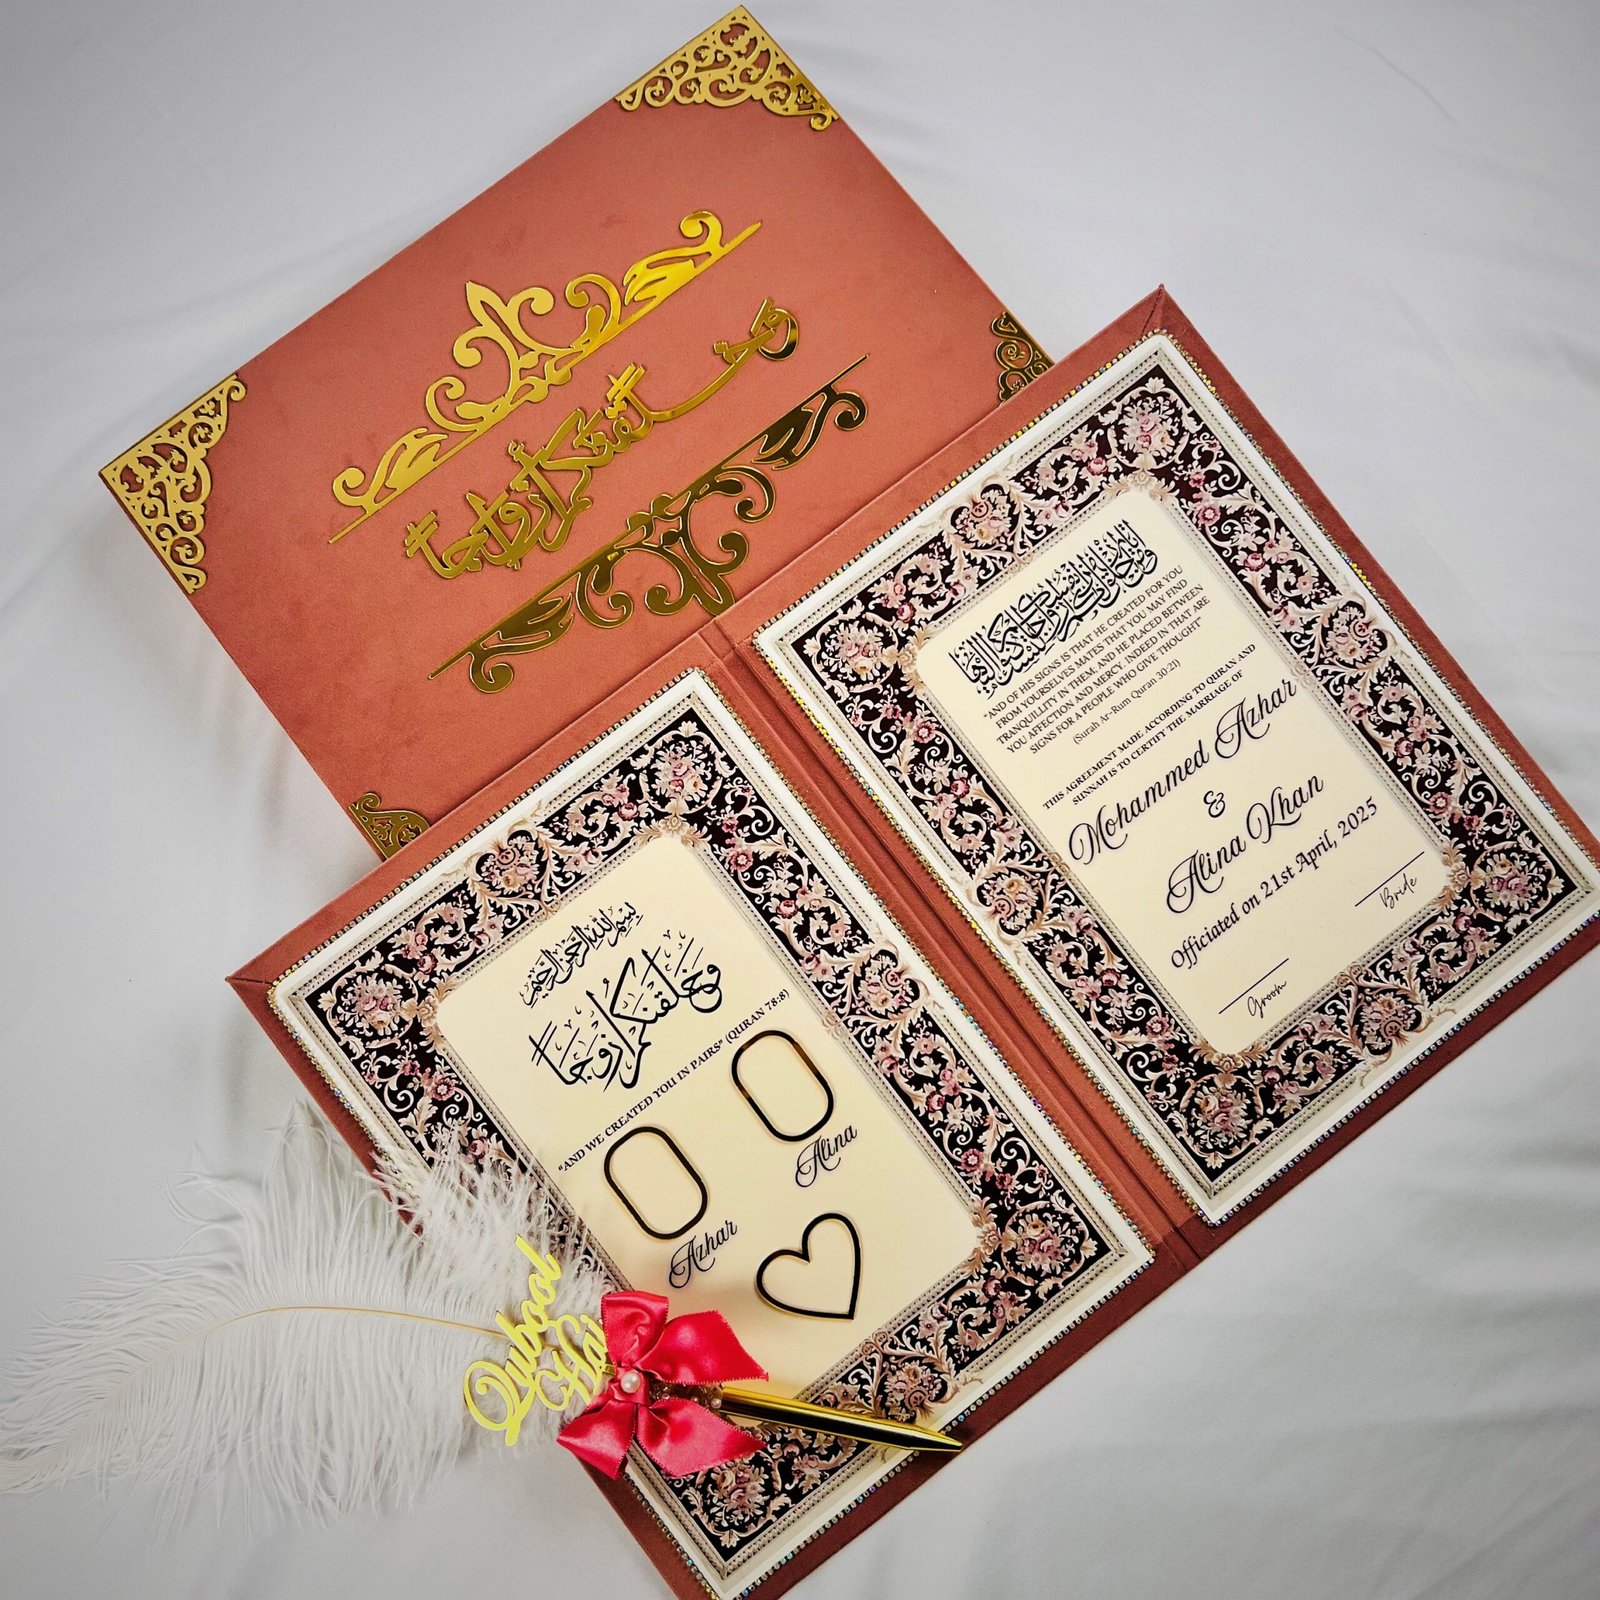 وخلقنكم أزواجا
بسم الله الرحمن الرحيم
وخلقنكم أزوجا
“AND WE CREATED YOU IN PAIRS” (QURAN 78:8)
Azhar
Alina
Qubool
Hai
“AND OF HIS SIGNS IS THAT HE CREATED FOR YOU
FROM YOURSELVES MATES THAT YOU MAY FIND
TRANQUILLITY IN THEM; AND HE PLACED BETWEEN
YOU AFFECTION AND MERCY. INDEED IN THAT ARE
SIGNS FOR A PEOPLE WHO GIVE THOUGHT”
(Surah Ar-Rum Quran 30:21)
THIS AGREEMENT MADE ACCORDING TO QURAN AND
SUNNAH IS TO CERTIFY THE MARRIAGE OF
Mohammed Azhar
&
Alina Khan
Officiated on 21st April, 2025
Groom
Bride